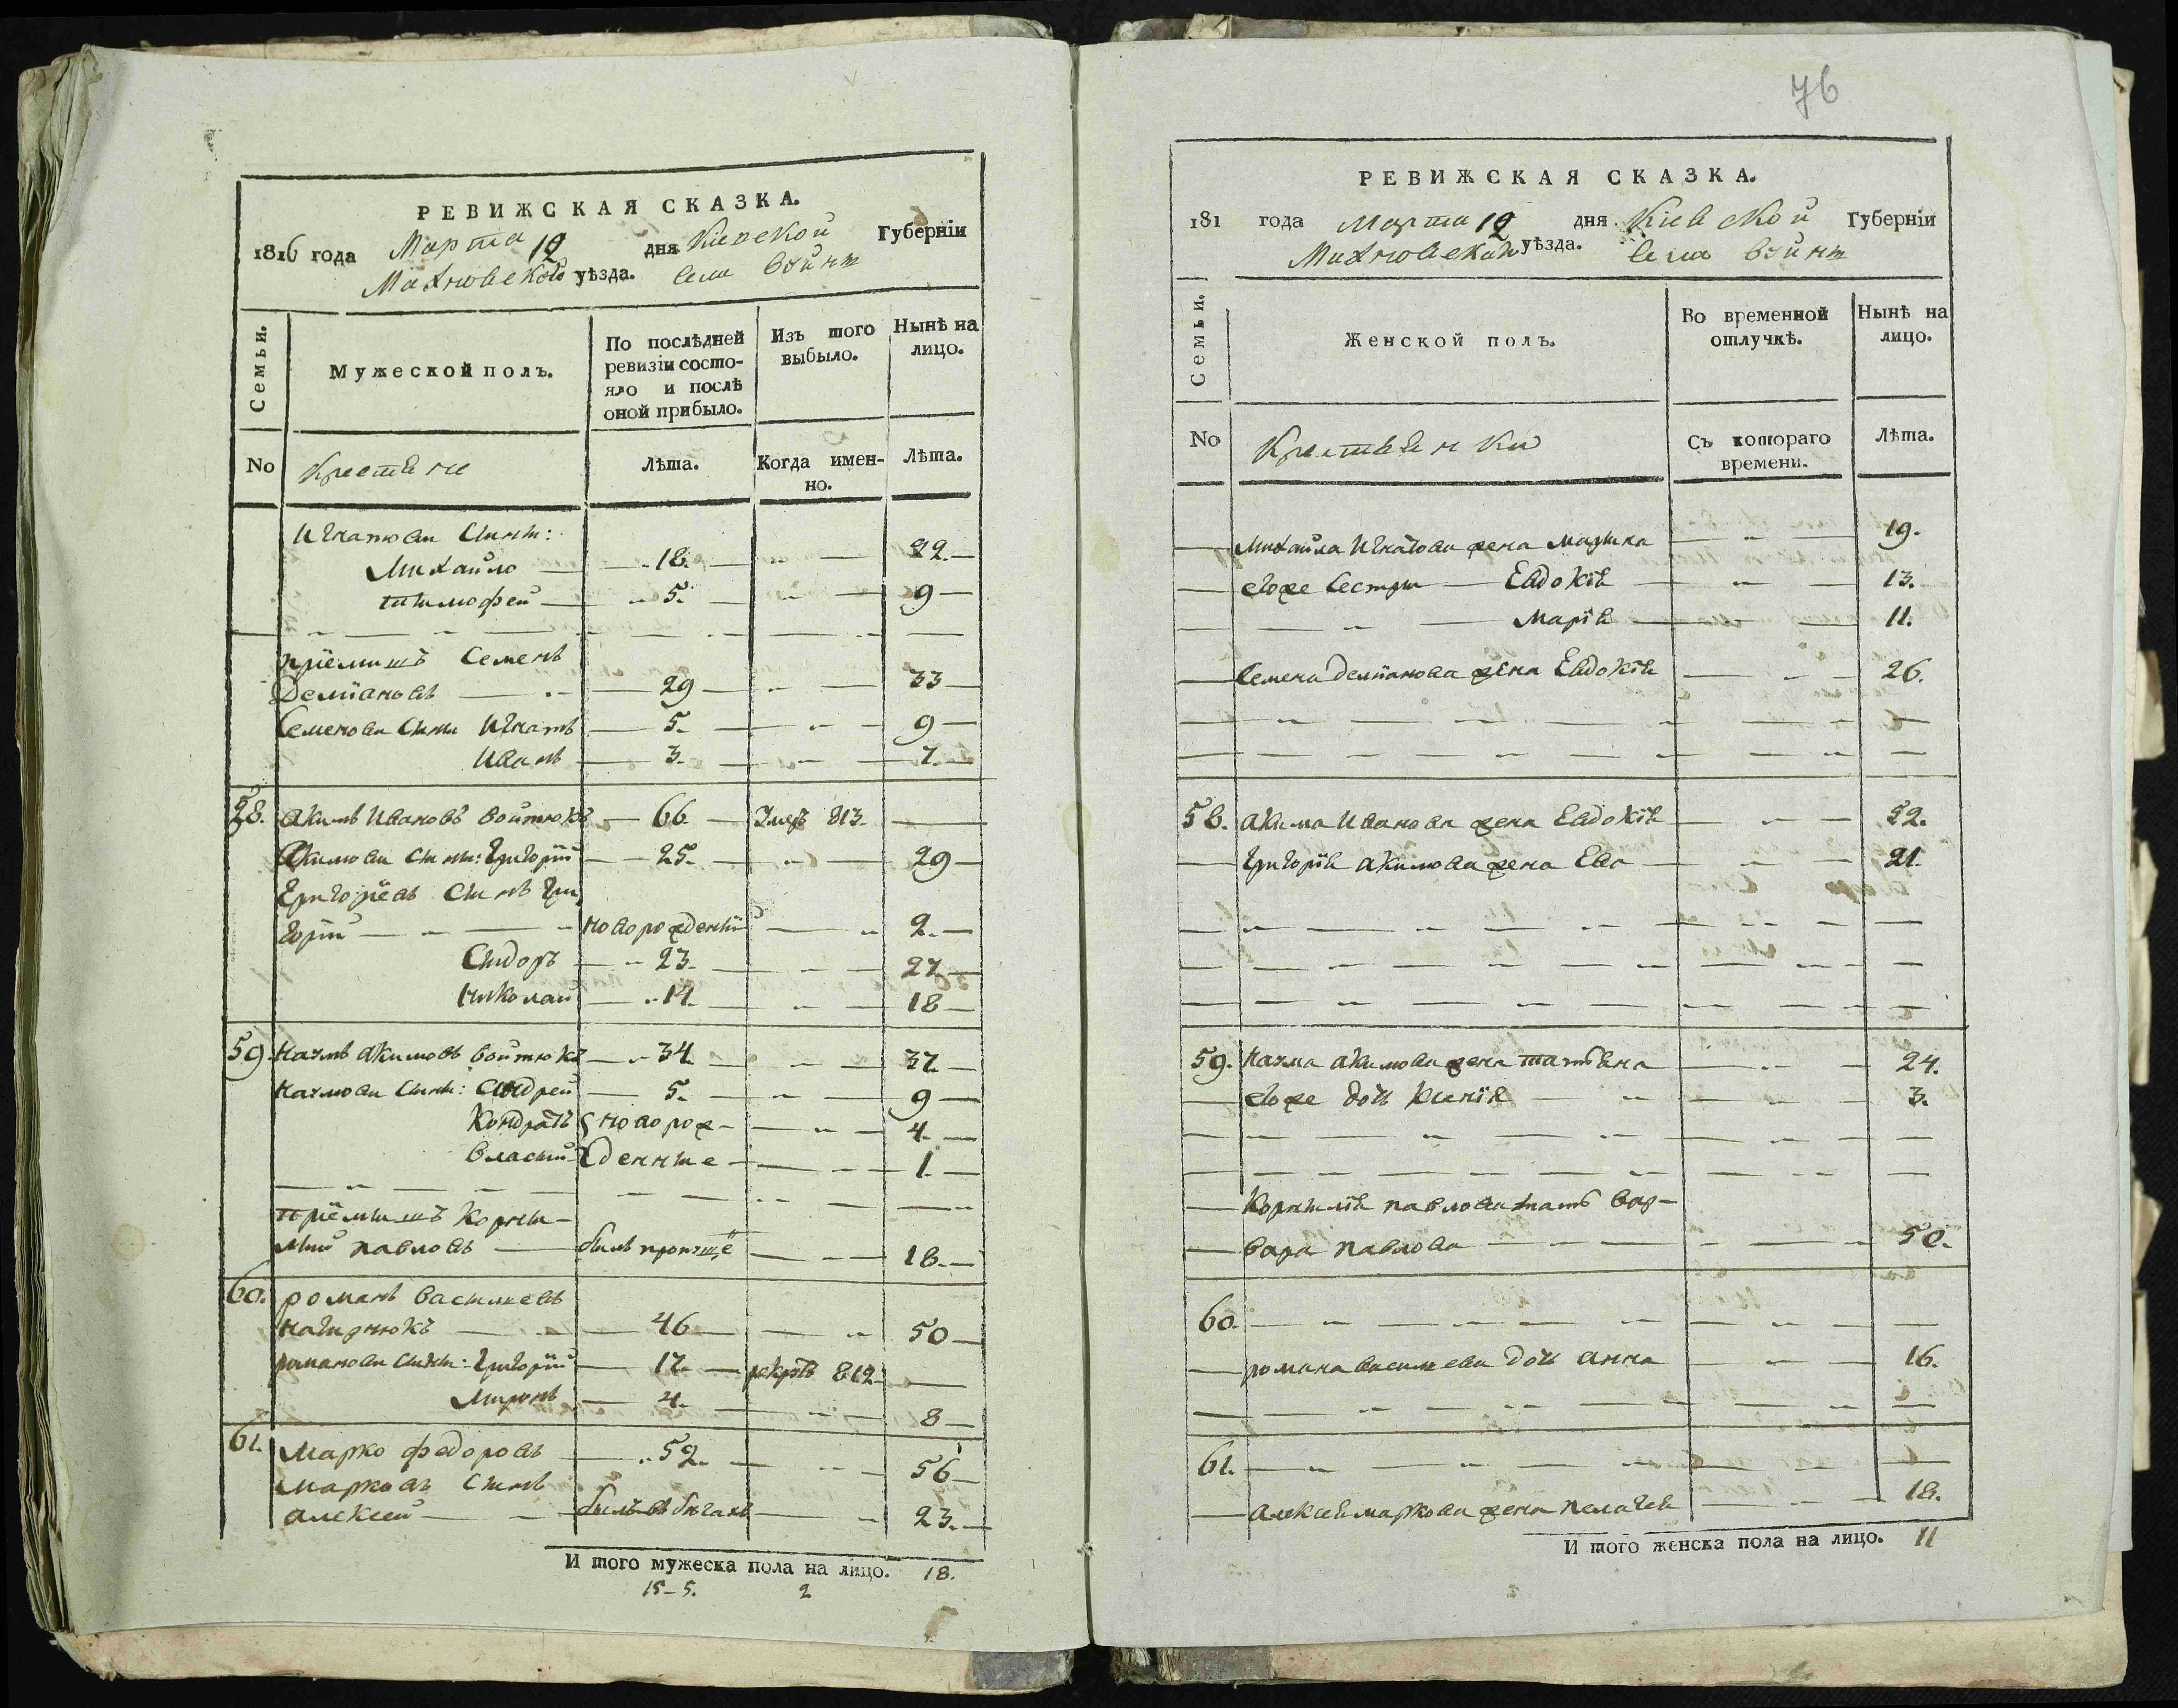 РЕВИЖСКАЯ СКАЗКА.
1816 года Марта 12 дня Киевской Губернїи
Махновского уѣзда. села Войнт
Семьи.
Мужеской полъ.
По послѣдней ревизїи состояло и послѣ оной прибыло.
Изъ того выбыло.
Нынѣ на лицо.
No
Крестяне
Лѣта.
Когда именно.
Лѣта.
Игнатови Сини:
Михайло 18. 22
тимофей 5. 9
прїемишъ Семенъ
Демїановъ 29 33
Семенови Сини Игнатъ 5. 9
Иванъ 3. 7
58. Акимъ Ивановъ войтюкъ 66. Умеръ 813
Акимови сини: Григорїй 25. 29
Григорїевъ Синъ Гри
горїй новорожденїй 2.
Сидоръ 23. 27
Николай 14. 18
59. Наумъ Акимовъ войтюкъ 34 37.
Наумови Сини: Андрей 5. 9
Кондратъ новорож- 4.
Власий денние 1.
прїемишъ Корни-
лий павловъ билъ прописнїй 18.
60. романъ василиевъ
Нагирнюкъ 46 50
романови сини: Григорїй 17. рекрутъ 812
Миронъ 4. 8
61. Марко федоровъ 52. 56
Марковъ Синъ
алексей билъ въ бегахъ 23.
И того мужеска пола на лицо. 18.
15-5. 2
76
РЕВИЖСКАЯ СКАЗКА.
181 года Марта 12 дня Киевской Губернїи
Махновской уѣзда. села Войнт
Семьи.
Женской полъ.
Во временной отлучкѣ.
Нынѣ на лицо.
No
Крестьянки
Съ котораго времени.
Лѣта.
Михайла Игнатова жена Марина 19.
егоже Сестри Евдокїя 13.
Марїя 11.
Семена Демїанова жена Евдокїя 26.
58. Акима Иванова жена Евдокїя 52.
Григорїя Акимова жена Ева 21.
59. Наума Акимова жена татяна 24.
егоже дочь Ксенїя 3.
Корнилїя павлова мать вар-
вара павлова 50.
60.
романа василиева дочь анна 16.
61.
Алексея маркова жена пелагея 18.
И того женска пола на лицо. 11